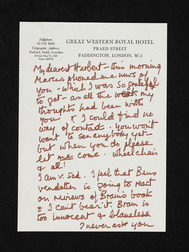 GREAT WESTERN ROYAL HOTEL
PRAED STREET
PADDINGTON, LONDON, W.2
My dearest Herbert - this morning
Marcus phoned me news of
you - which I was so grateful
to get - as all the week my
thoughts had been with
you & I could find no
way of contact. You won't
want to see anybody yet -
but when you do please
let me come. Wheelchair
& all!
I am v. sad. I feel that Bens
vendetta is going to react
on reviews of Brams book
& I can't bear it. Bram is
too innocent & blameless
I never ask you